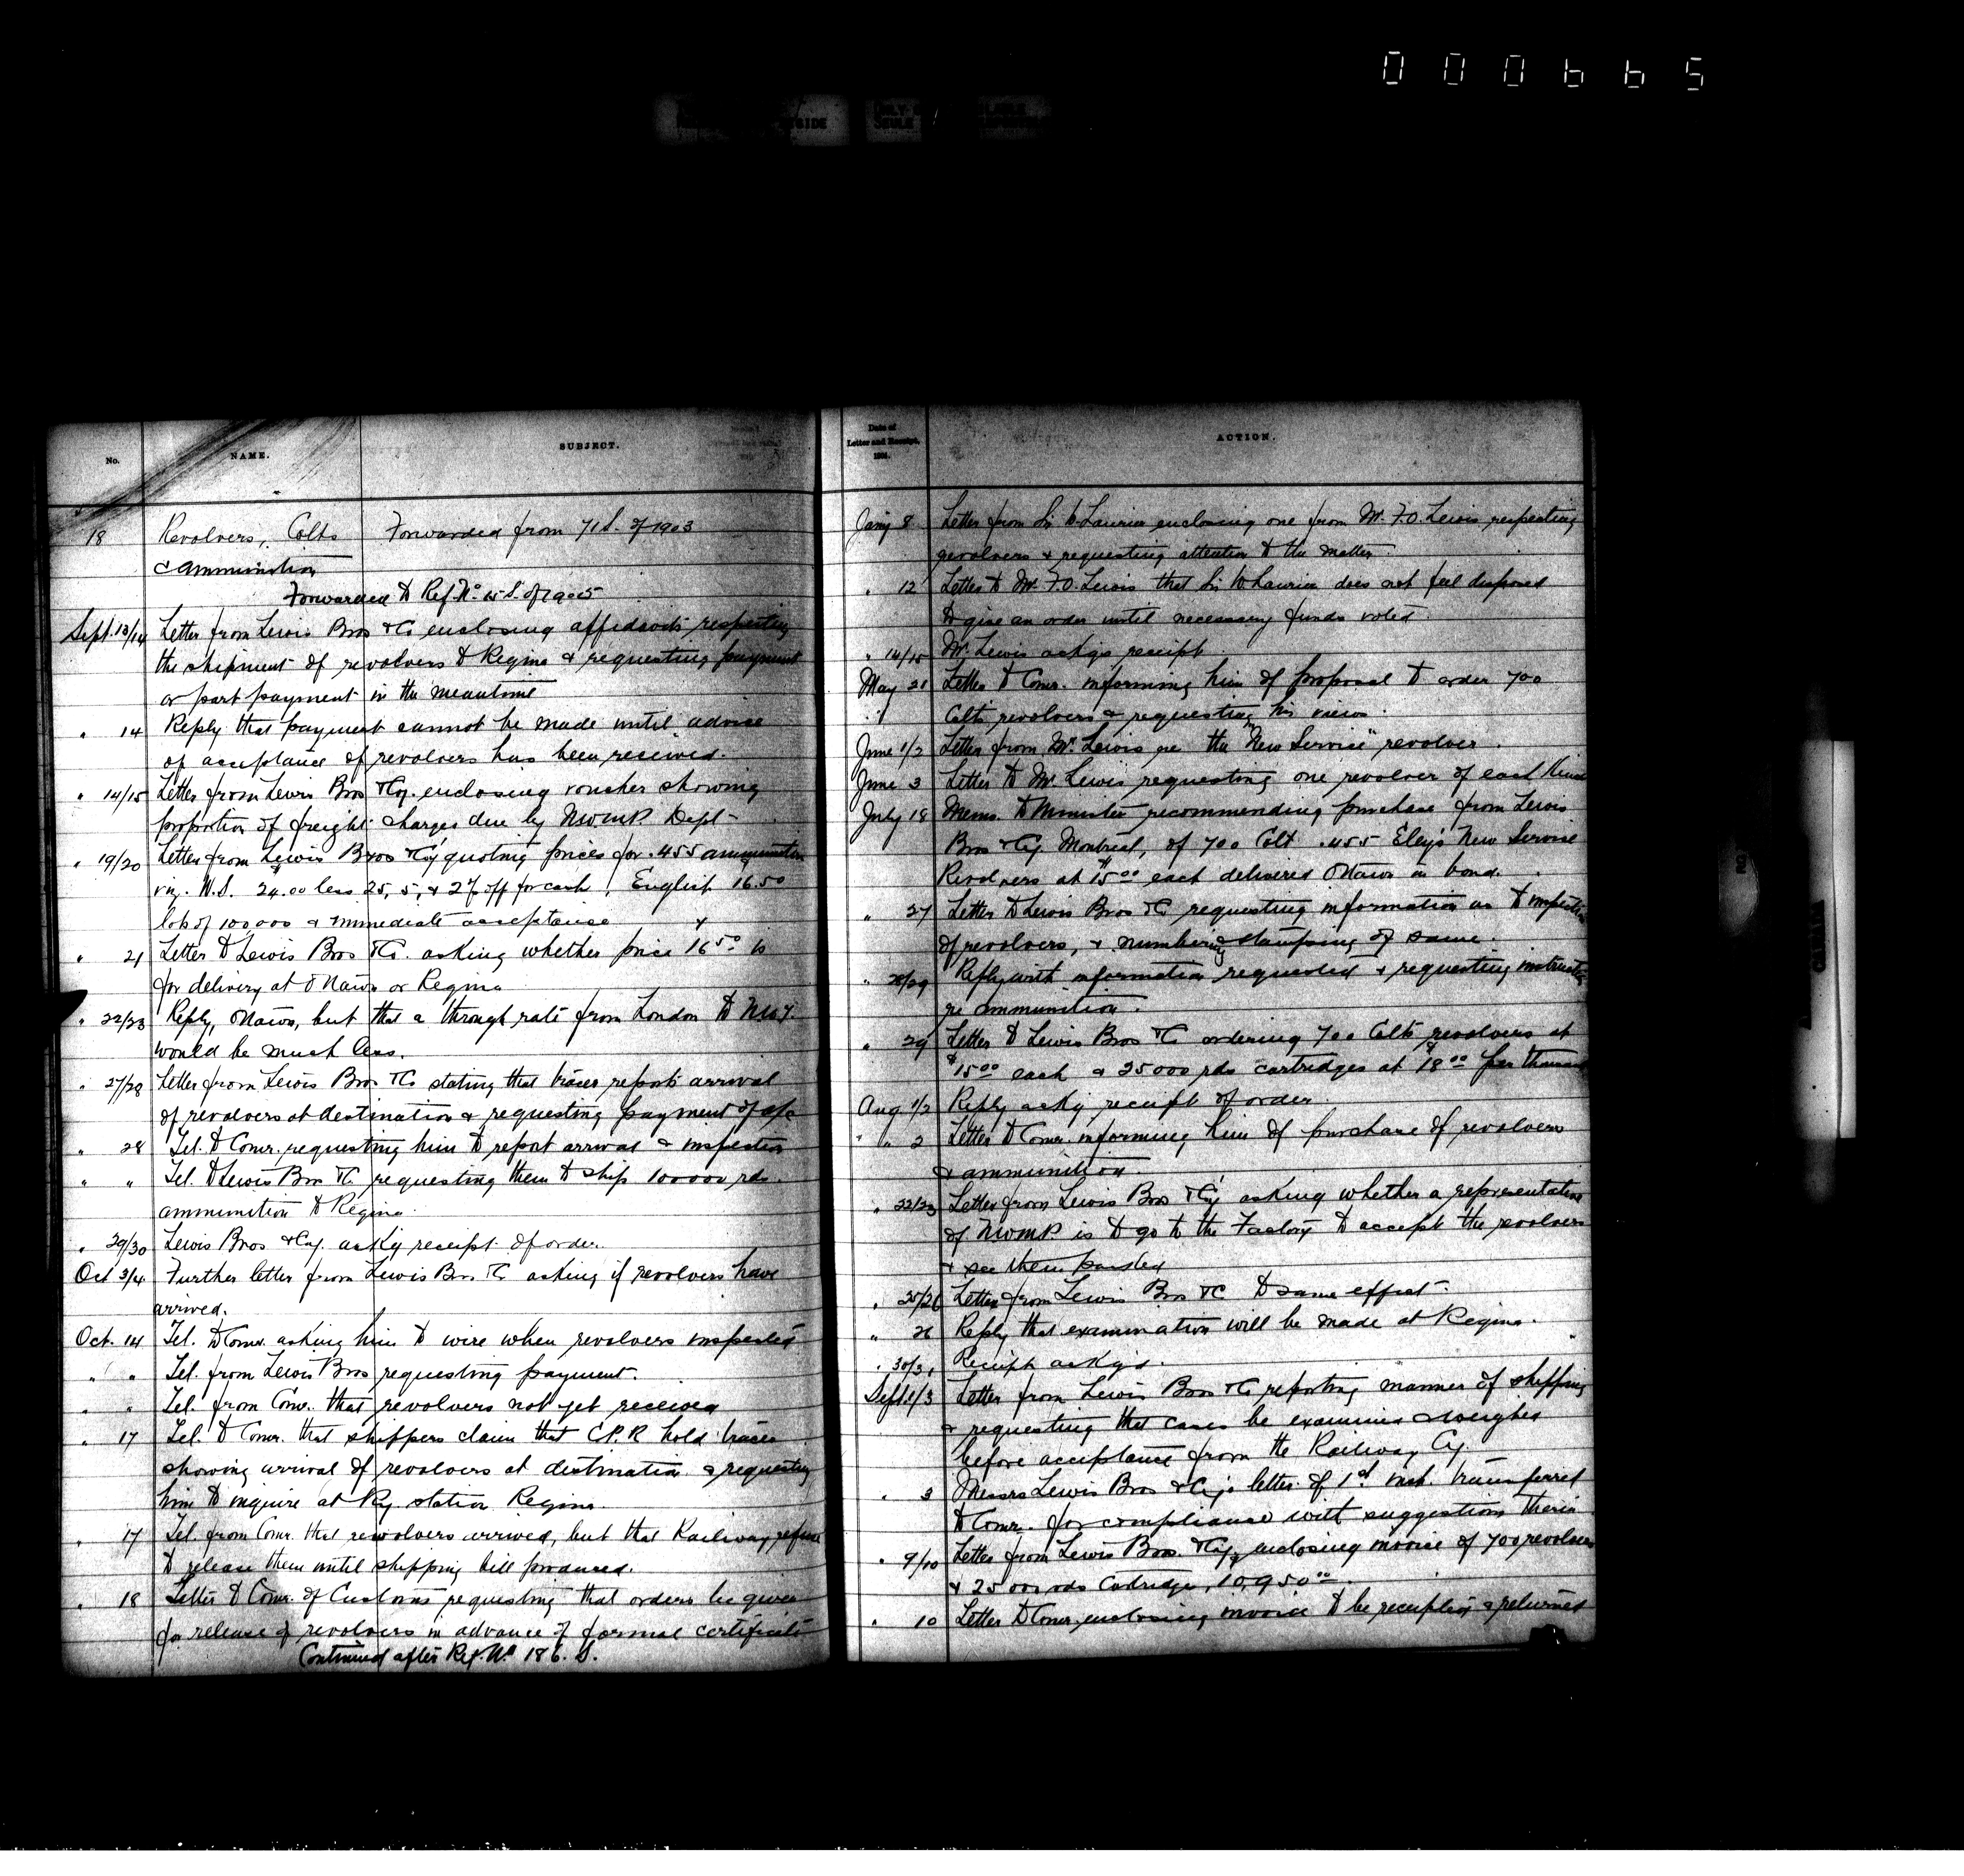 000665
No.
NAME.
SUBJECT.
18
Revolvers, Colts
Forwarded from 71 S. of 1903
& ammunition
Forwarded to Ref. No. 15 S. of 1905
Sept. 13/14 Letter from Lewis Bros & Co enclosing affidavits respecting
the shipment of revolvers to Regina & requesting payment
or part payment in the meantime
" 14 Reply that payment cannot be made until advice
of acceptance of revolvers has been received.
" 14/15 Letter from Lewis Bros & Coy. enclosing voucher showing
proportion of freight charges due by NWMP. Dept
" 19/20 Letter from Lewis Bros & Coy quoting prices for .455 ammunition
viz. W.S. 24.00 less 25, 5, & 2% off for cash, English 16.50
lots of 100,000 & immediate acceptance
" 21 Letter to Lewis Bros & Co. asking whether price 16.50 is
for delivery at Ottawa or Regina
" 22/23 Reply, Ottawa, but that a through rate from London to NWT
would be much less.
" 27/28 Letter from Lewis Bros & Co stating that tracer reports arrival
of revolvers at destination & requesting payment of a/c
" 28 Tel. to Comr. requesting him to report arrival & inspection
" " Tel. to Lewis Bros & Co requesting them to ship 100000 rds.
ammunition to Regina.
" 29/30 Lewis Bros & Coy. ackg receipt of order.
Oct 3/4 Further letter from Lewis Bros & Co asking if revolvers have
arrived.
Oct. 14 Tel. to Comr. asking him to wire when revolvers inspected
" " Tel. from Lewis Bros requesting payment.
" " Tel. from Comr. that revolvers not yet received
" 17 Tel. to Comr. that shippers claim that C.P.R hold tracer
showing arrival of revolvers at destination & requesting
him to inquire at Ry. station Regina.
" 17 Tel. from Comr. that revolvers arrived, but that Railway refuse
to release them until shipping bill produced.
" 18 Letter to Comr. of Customs requesting that orders be given
for release of revolvers in advance of formal certificate
Continued after Ref. No 186. S.
Date of
Letter and Receipt,
ACTION.
Jany 8 Letter from Sir W Laurier enclosing one from Mr. F.O. Lewis, respecting
revolvers & requesting attention to the matter.
" 12 Letter to Mr. F.O. Lewis that Sir W Laurier does not feel disposed
to give an order until necessary funds voted.
" 14/15 Mr. Lewis ackgs receipt.
May 21 Letter to Comr. informing him of proposal to order 700
Colts revolvers & requesting his views.
June 1/2 Letter from Mr. Lewis re the "New Service" revolver.
June 3 Letter to Mr. Lewis requesting one revolver of each kind
July 18 Memo. to Minister recommending purchase from Lewis
Bros & Coy Montreal, of 700 Colt .455 Eley's New Service
Revolvers at $15.00 each delivered Ottawa in bond.
" 27 Letter to Lewis Bros & Co requesting information as to inspection
of revolvers, & numbering & stamping of same.
" 28/29 Reply with information requested & requesting instructions
re ammunition.
" 29 Letter to Lewis Bros & Co ordering 700 Colts revolvers at
$15.00 each & 25000 rds cartridges at $18.00 per thousand
Aug 1/2 Reply ackg receipt of order.
" 2 Letter to Comr. informing him of purchase of revolvers
& ammunition.
" 22/23 Letter from Lewis Bros & Coy asking whether a representative
of NWMP is to go to the Factory to accept the revolvers
& see them packed
" 25/26 Letter from Lewis Bros & Co to same effect.
" 26 Reply that examination will be made at Regina.
" 30/31 Receipt ackg'd.
Sept 1/3 Letter from Lewis Bros & Co, reporting manner of shipping
& requesting that cases be examined & weighed
before acceptance from the Railway Cy.
" 3 Messrs Lewis Bros & Coy's letter of 1st inst. transferred
to Comr. for compliance with suggestions therein
" 9/10 Letter from Lewis Bros. & Coy, enclosing invoice of 700 revolvers
& 25000 rds Cartridges, 10,950.00
" 10 Letter to Comr. enclosing invoice to be receipted & returned